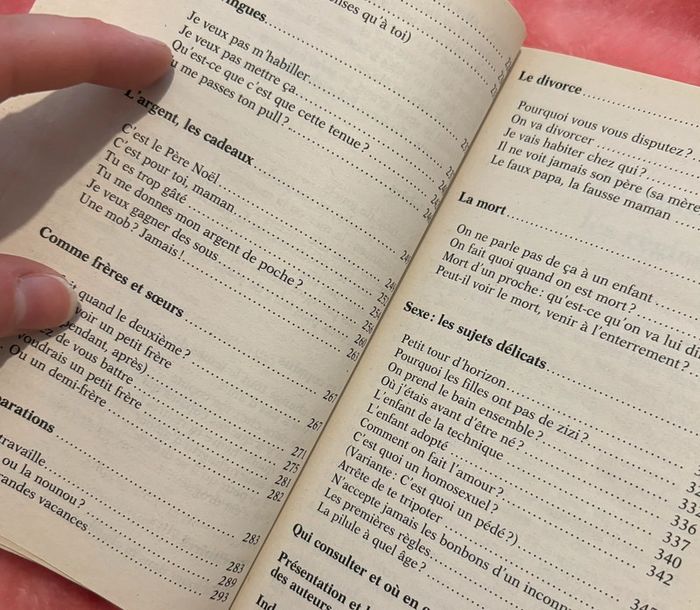 (
nses qu'à toi)
ngues
Je veux pas m'habiller
Je veux pas mettre ça
Qu'est-ce que c'est que cette tenue ?
u me passes ton pull ?
L'argent, les cadeaux
C'est le Père Noël
C'est pour toi, maman
Tu es trop gâté
Tu me donnes mon argent de poche ?
Je veux gagner des sous
Une mob ? Jamais !
Comme frères et sœurs
quand le deuxième ?
voir un petit frère
pendant, après)
de vous battre
voudrais un petit frère
Ou un demi-frère
parations
travaille
ou la nounou ?
randes vacances
267
267
271
275
281
282
283
283
289
293
Le divorce
Pourquoi vous vous disputez ?
On va divorcer
Je vais habiter chez qui ?
Il ne voit jamais son père (sa mère
Le faux papa, la fausse maman
La mort
On ne parle pas de ça à un enfant
On fait quoi quand on est mort ?
Mort d'un proche : qu'est-ce qu'on va lui di
Peut-il voir le mort, venir à l'enterrement ?
Sexe : les sujets délicats
Petit tour d'horizon
Pourquoi les filles ont pas de zizi ?
On prend le bain ensemble ?
Où j'étais avant d'être né ?
L'enfant de la technique
L'enfant adopté
Comment on fait l'amour ?
C'est quoi un homosexuel ?
(Variante : C'est quoi un pédé ?)
Arrête de te tripoter
N'accepte jamais les bonbons d'un inconn
Les premières règles
La pilule à quel âge ?
334
336
337
340
342
Qui consulter et où en
Présentation et
des auteurs
Ind